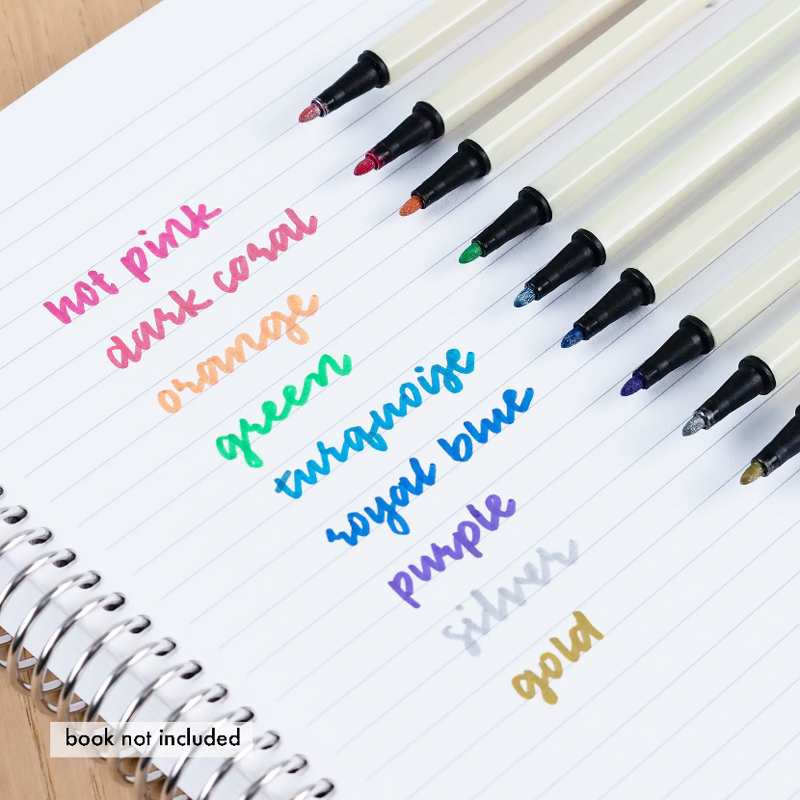 hot pink
dark coral
orange
green
turquoise
royal blue
purple
silver
gold
book not included